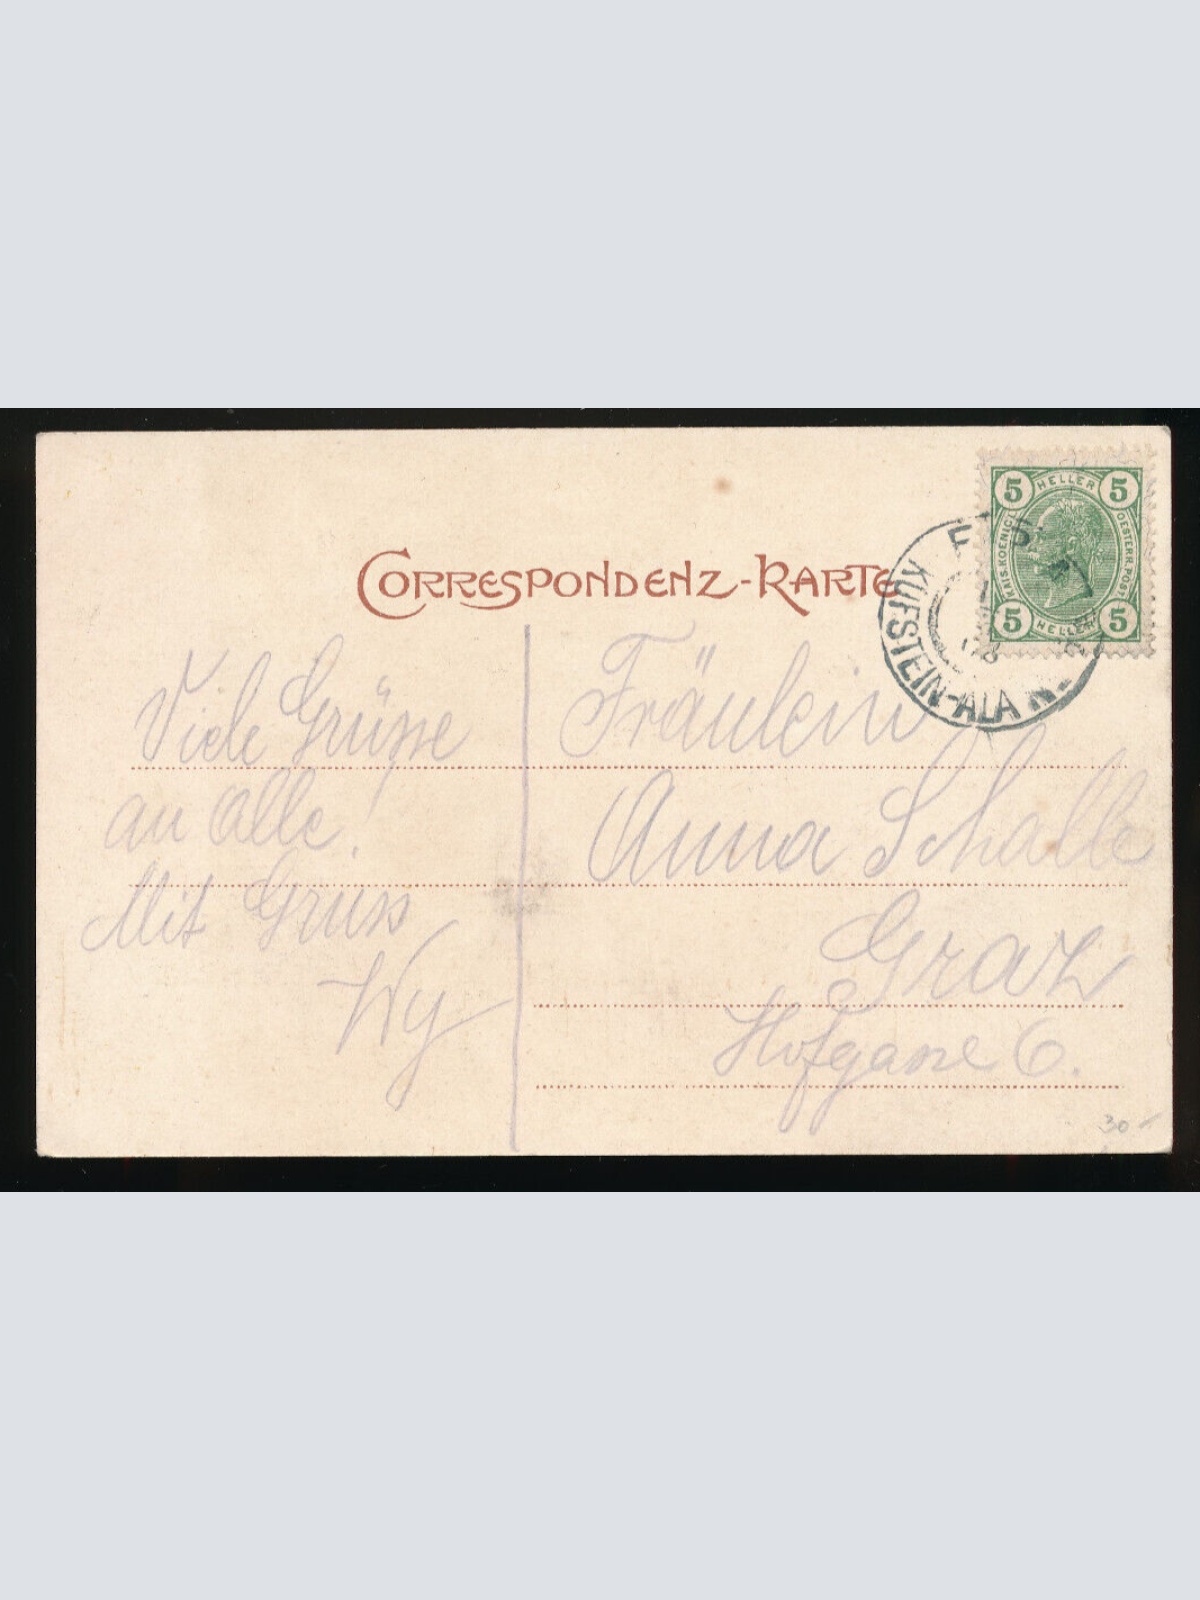 CORRESPONDENZ-KARTE
5 HELLER 5
KAIS. KOENIGL. OESTERR. POST
5 HELLER 5
KUFSTEIN-ALA
Viele Grüsse
an Alle!
Mit Gruss
Fräulein
Anna Schalk
Graz
Hofgasse 6.
30